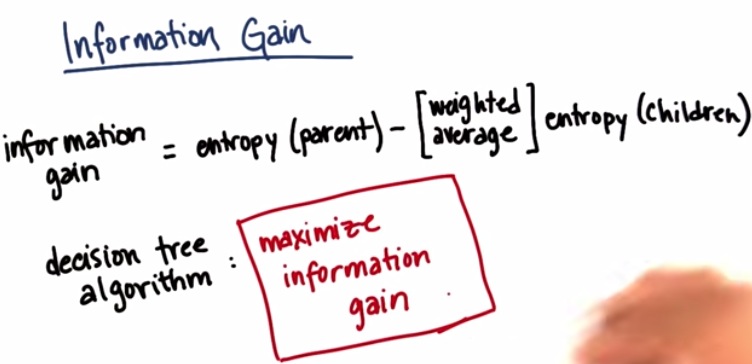 Information Gain
information gain = entropy (parent) - [weighted average] entropy (children)
decision tree algorithm :
maximize
information
gain